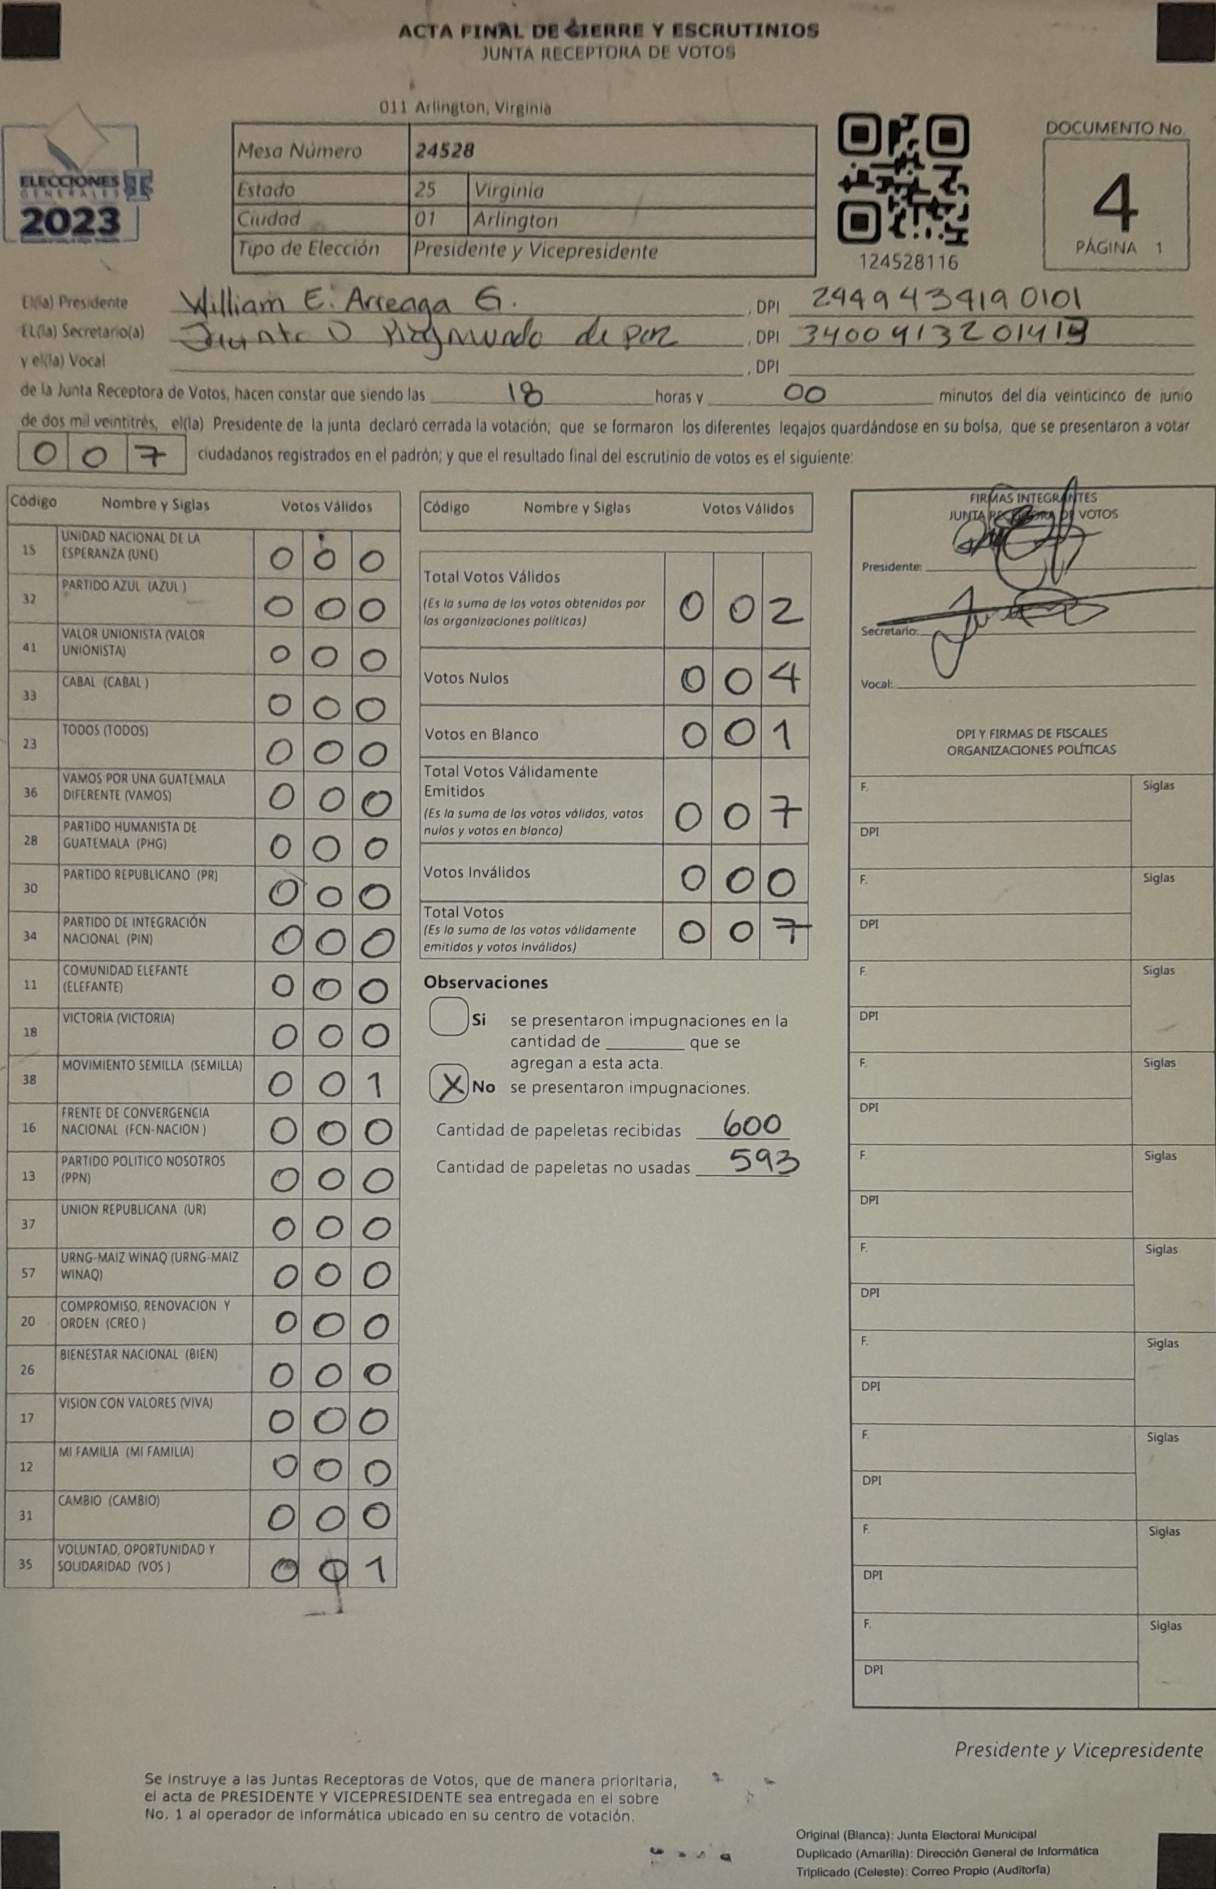 ACTA FINAL DE CIERRE Y ESCRUTINIOS
JUNTA RECEPTORA DE VOTOS
011 Arlington, Virginia
ELECCIONES
GENERALES
2023
Mesa Número 24528
Estado 25 Virginia
Ciudad 01 Arlington
Tipo de Elección Presidente y Vicepresidente
124528116
DOCUMENTO No.
4
PÁGINA 1
El(la) Presidente William E. Arreaga G. , DPI 2949434190101
EL(la) Secretario(a) de Paz , DPI
y el(la) Vocal , DPI
de la Junta Receptora de Votos, hacen constar que siendo las 18 horas y 00 minutos del día veinticinco de junio
de dos mil veintitrés, el(la) Presidente de la junta declaró cerrada la votación; que se formaron los diferentes legajos guardándose en su bolsa, que se presentaron a votar
0 0 7 ciudadanos registrados en el padrón; y que el resultado final del escrutinio de votos es el siguiente:
Código Nombre y Siglas Votos Válidos
15 UNIDAD NACIONAL DE LA ESPERANZA (UNE) 0 0 0
32 PARTIDO AZUL (AZUL ) 0 0 0
41 VALOR UNIONISTA (VALOR UNIONISTA) 0 0 0
33 CABAL (CABAL ) 0 0 0
23 TODOS (TODOS) 0 0 0
36 VAMOS POR UNA GUATEMALA DIFERENTE (VAMOS) 0 0 0
28 PARTIDO HUMANISTA DE GUATEMALA (PHG) 0 0 0
30 PARTIDO REPUBLICANO (PR) 0 0 0
34 PARTIDO DE INTEGRACIÓN NACIONAL (PIN) 0 0 0
11 COMUNIDAD ELEFANTE (ELEFANTE) 0 0 0
18 VICTORIA (VICTORIA) 0 0 0
38 MOVIMIENTO SEMILLA (SEMILLA) 0 0 1
16 FRENTE DE CONVERGENCIA NACIONAL (FCN-NACION ) 0 0 0
13 PARTIDO POLITICO NOSOTROS (PPN) 0 0 0
37 UNION REPUBLICANA (UR) 0 0 0
57 URNG-MAIZ WINAQ (URNG-MAIZ WINAQ) 0 0 0
20 COMPROMISO, RENOVACION Y ORDEN (CREO ) 0 0 0
26 BIENESTAR NACIONAL (BIEN) 0 0 0
17 VISION CON VALORES (VIVA) 0 0 0
12 MI FAMILIA (MI FAMILIA) 0 0 0
31 CAMBIO (CAMBIO) 0 0 0
35 VOLUNTAD, OPORTUNIDAD Y SOLIDARIDAD (VOS ) 0 0 1
Código Nombre y Siglas Votos Válidos
Total Votos Válidos
(Es la suma de los votos obtenidos por
las organizaciones políticas) 0 0 2
Votos Nulos 0 0 4
Votos en Blanco 0 0 1
Total Votos Válidamente
Emitidos
(Es la suma de los votos válidos, votos
nulos y votos en blanco) 0 0 7
Votos Inválidos 0 0 0
Total Votos
(Es la suma de los votos válidamente
emitidos y votos inválidos) 0 0 7
Observaciones
Si se presentaron impugnaciones en la
cantidad de ________ que se
agregan a esta acta.
X No se presentaron impugnaciones.
Cantidad de papeletas recibidas 600
Cantidad de papeletas no usadas 593
FIRMAS INTEGRANTES
JUNTA RECEPTORA DE VOTOS
Presidente:
Secretario:
Vocal:
DPI Y FIRMAS DE FISCALES
ORGANIZACIONES POLÍTICAS
F. Siglas
DPI
F. Siglas
DPI
F. Siglas
DPI
F. Siglas
DPI
F. Siglas
DPI
F. Siglas
DPI
F. Siglas
DPI
F. Siglas
DPI
F. Siglas
DPI
F. Siglas
DPI
Presidente y Vicepresidente
Se instruye a las Juntas Receptoras de Votos, que de manera prioritaria,
el acta de PRESIDENTE Y VICEPRESIDENTE sea entregada en el sobre
No. 1 al operador de informática ubicado en su centro de votación.
Original (Blanca): Junta Electoral Municipal
Duplicado (Amarilla): Dirección General de Informática
Triplicado (Celeste): Correo Propio (Auditoría)